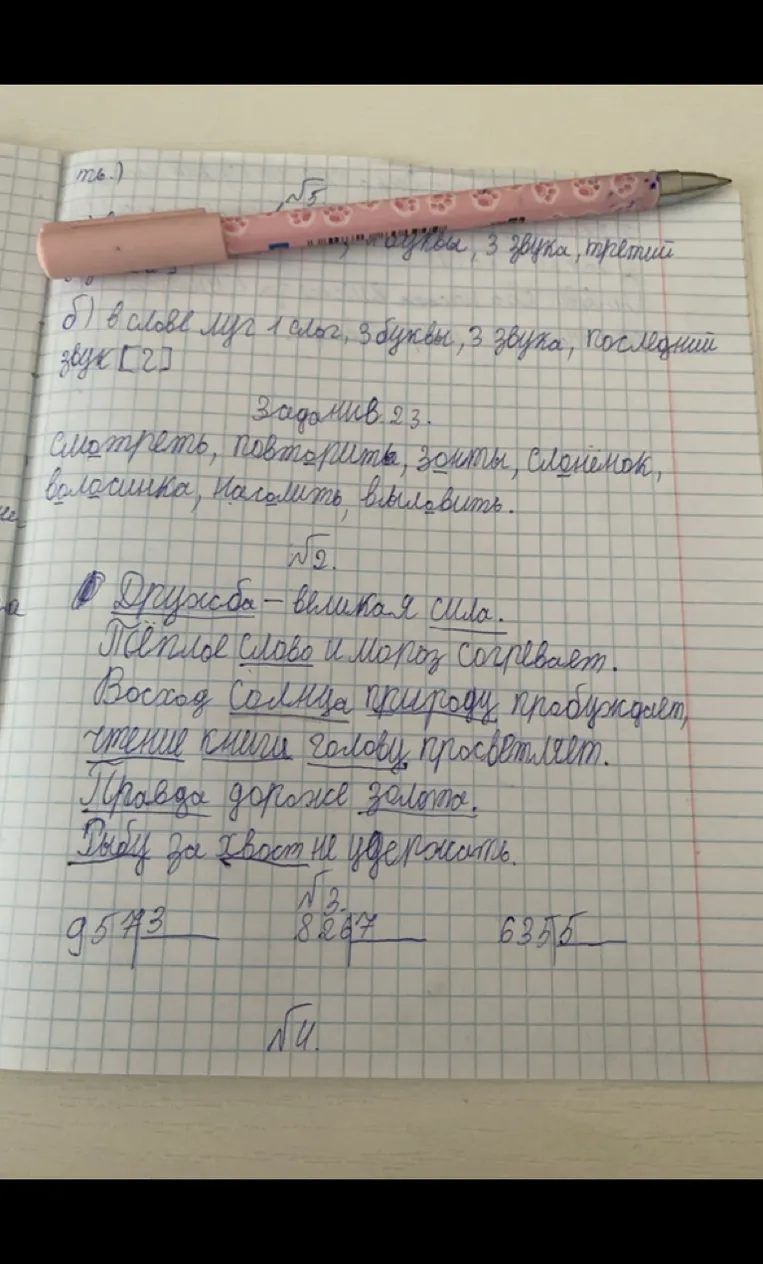 ть.)
№5
буквы, 3 звука, третий
б) в слове луг 1 слог, 3 буквы, 3 звука, последний
звук [г]
Задание 23.
смотреть, повторить, зонты, слонёнок,
волосинка, насолить, выловить.
№2.
Дружба – великая сила.
Тёплое слово и мороз согревает.
Восход солнца природу пробуждает,
чтение книги голову просветляет.
Правда дороже золота.
Рыбу за хвост не удержать.
№3.
957 3 826 7 635 5
№4.